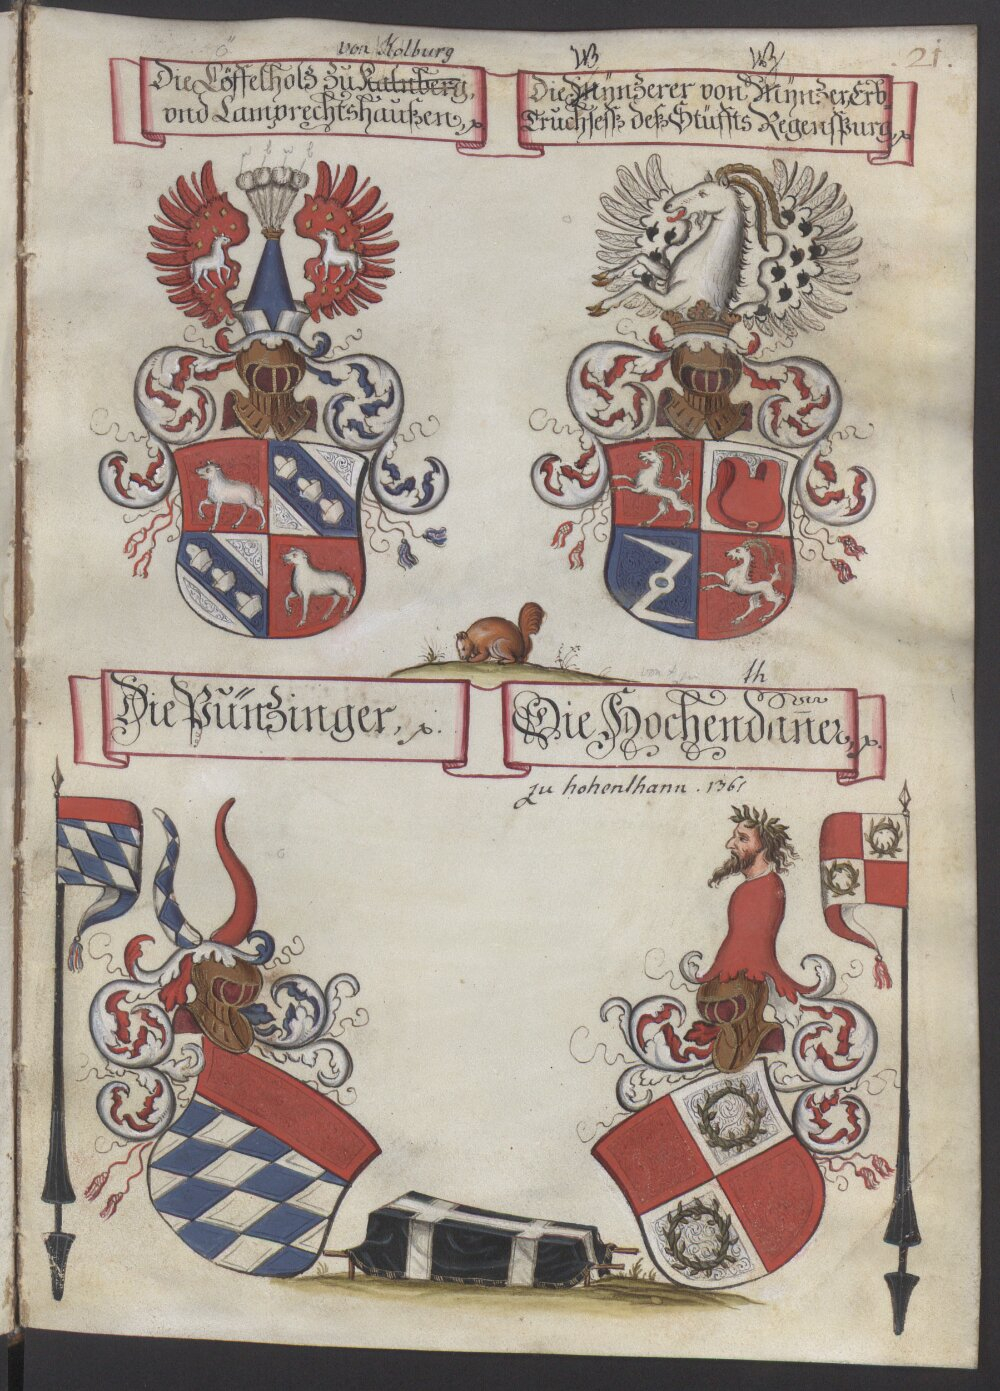 .21.
von Kolburg
Die Löffelholz zu Kalnberg,
vnd Lamprechtshaußen,
W W
Die Mÿnzerer von Mÿnzer, Erb
Truchseß deß Stüffts Regenspurg,
Die Pünzinger,
th
Die Hochendañer,
zu hohenthann . 1361